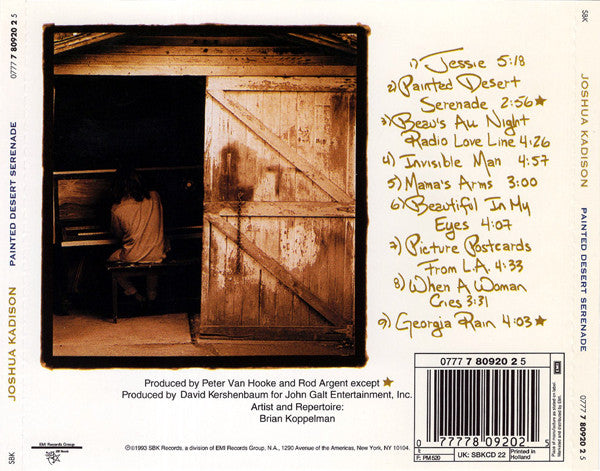 SBK
0777 7 80920 2 5
PAINTED DESERT SERENADE
JOSHUA KADISON
SBK
1) Jessie 5:18
2) Painted Desert
Serenade 2:56★
3) Beau's All Night
Radio Love Line 4:26
4) Invisible Man 4:57
5) Mama's Arms 3:00
6) Beautiful In My
Eyes 4:07
7) Picture Postcards
From L.A. 4:33
8) When A Woman
Cries 3:31
9) Georgia Rain 4:03★
Produced by Peter Van Hooke and Rod Argent except ★
Produced by David Kershenbaum for John Galt Entertainment, Inc.
Artist and Repertoire:
Brian Koppelman
EMI Records Group
℗©1993 SBK Records, a division of EMI Records Group, N.A., 1290 Avenue of the Americas, New York, NY 10104.
0777 7 80920 2 5
0 77778 09202 5
UK: SBKCD 22
F: PM 520
Printed in
Holland
EMI
SBK
JOSHUA KADISON
PAINTED DESERT SERENADE
0777 7 80920 2 5